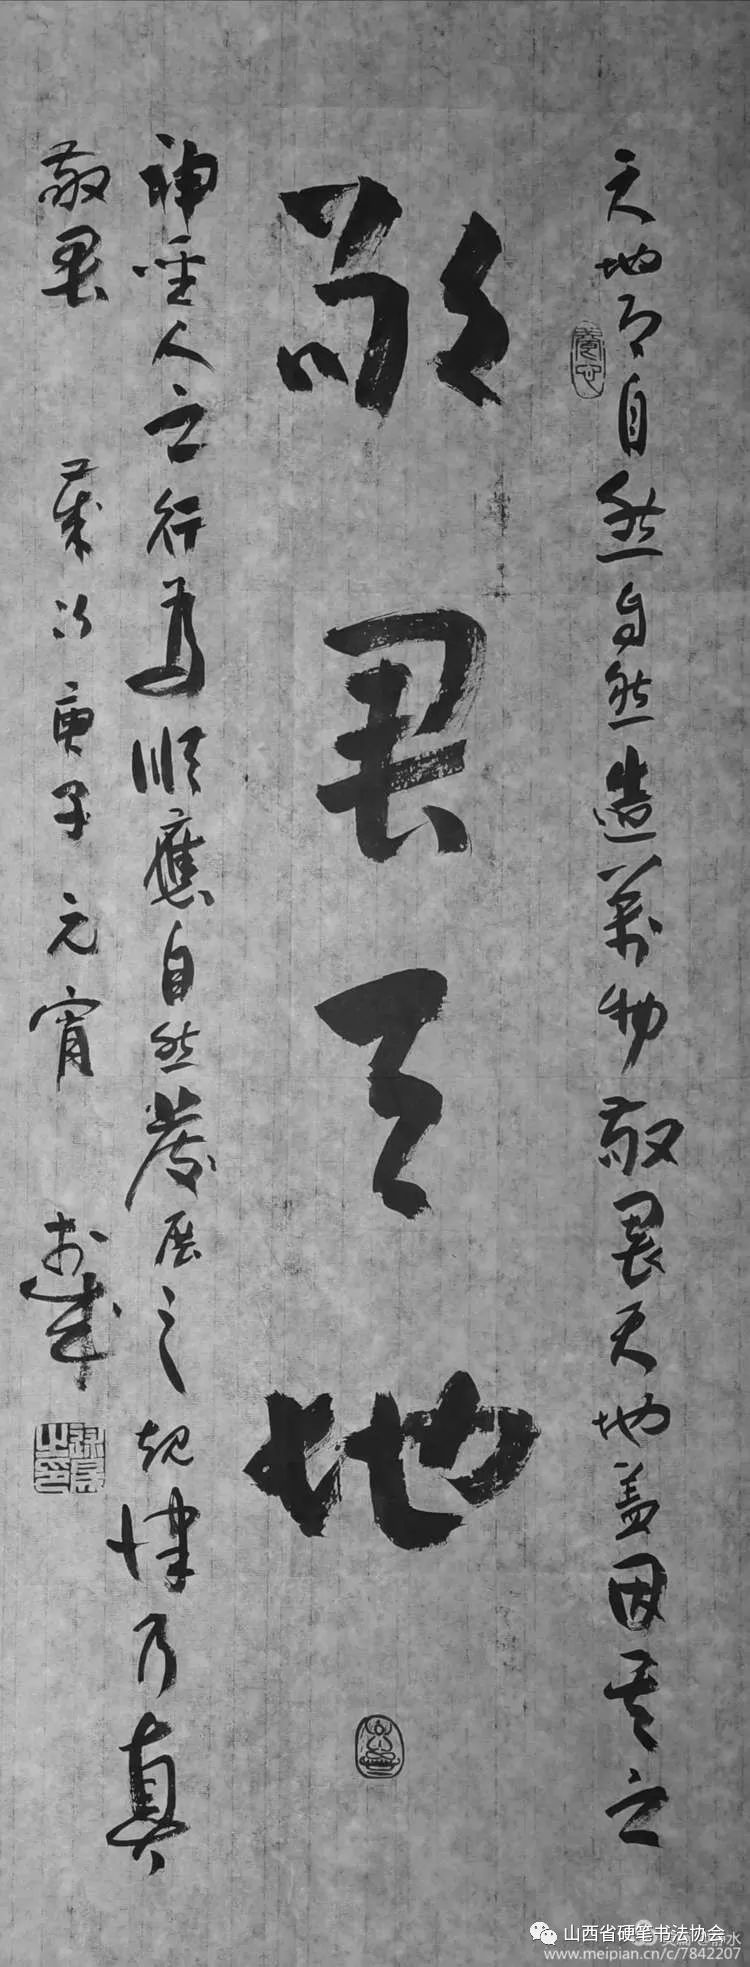 天地即自然自然造萬物敬畏天地盖因其之
敬畏天地
神聖人之行為順應自然發展之規律乃真
敬畏 歲次庚子元宵
山西省硬笔书法协会
www.meipian.cn/c/7842207